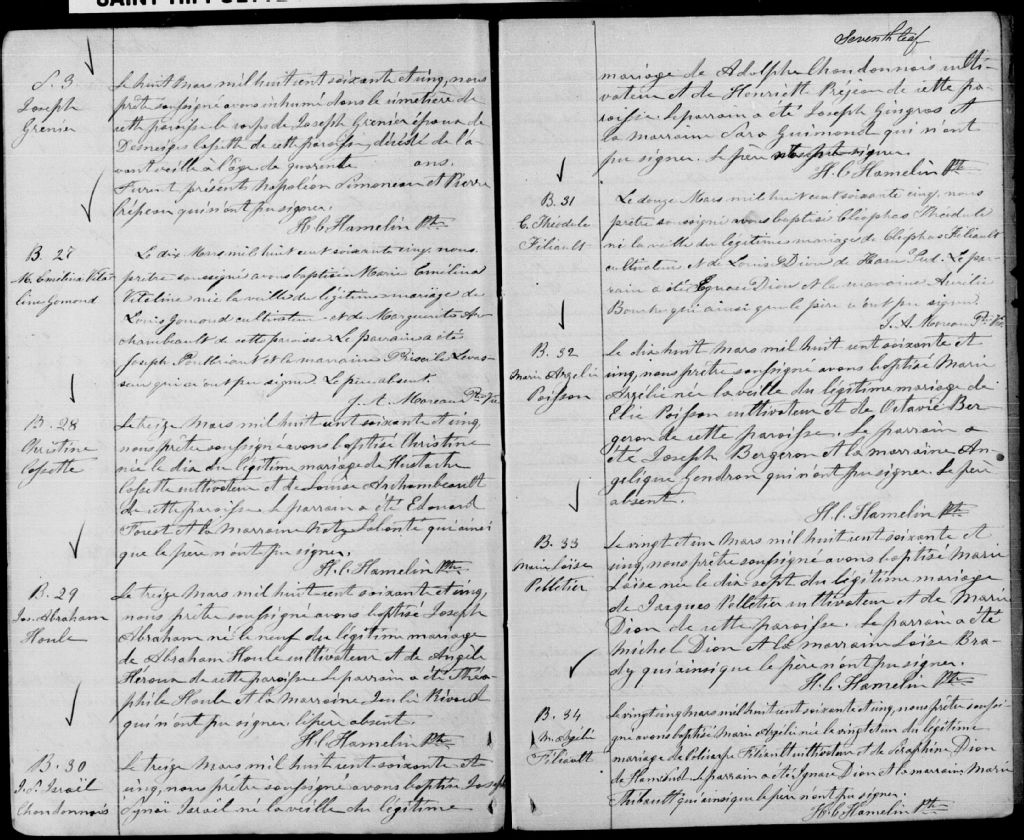 S. 3
Joseph
Grenier
Le huit Mars mil huit cent soixante et cinq, nous
prêtre soussigné avons inhumé dans le cimetière de
cette paroisse le corps de Joseph Grenier époux de
Desneiges Cossette de cette paroisse, décédé de l'a-
vant veille à l'âge de quarente ans.
Furent présents Napoléon Simoneau et Pierre
Crépeau qui n'ont pu signer.
H. C. Hamelin Ptre
B. 27
M. Emélina Vita
line Gomond
Le dix Mars mil huit cent soixante cinq, nous
prêtre soussigné avons baptisé Marie Emélina
Vitaline née la veille du légitime mariage de
Louis Gomond cultivateur et de Marguerite Ar-
chambeault de cette paroisse. Le parrain a été
Joseph Pouilliaut et la marraine Priscile Levas-
seur qui n'ont pu signer. Le père absent.
J. A. Moreau Ptre Vic
B. 28
Christine
Cossette
Le treize Mars mil huit cent soixante et cinq,
nous prêtre soussigné avons baptisé Christine
née le dix du légitime mariage de Heustache
Cossette cultivateur et de Louise Archambeault
de cette paroisse. Le parrain a été Edouard
Forest et la marraine Laliberté qui ainsi
que le père n'ont pu signer.
H. C. Hamelin Ptre
B. 29
Jos. Abraham
Houle
Le treize Mars mil huit cent soixante et cinq,
nous prêtre soussigné avons baptisé Joseph
Abraham né le neuf du légitime mariage
de Abraham Houle cultivateur et de Angèle
Héroux de cette paroisse. Le parrain a été Théo-
phile Houle et la marraine Julie Rivard
qui n'ont pu signer. le père absent.
H. C. Hamelin Ptre
B. 30
J. S. Israël
Chandonnais
Le treize Mars mil huit cent soixante et
cinq, nous prêtre soussigné avons baptisé Joseph
Synaï Israël né la veille du légitime
Seventh leaf
mariage de Adolphe Chandonnais culti-
vateur et de Henriette Préjean de cette pa-
roisse. Le parrain a été Joseph Gingras et
la marraine Sara Guimond qui n'ont
pu signer. Le père
H. C. Hamelin Ptre
B. 31
C. Théodule
Filiault
Le douze Mars mil huit cent soixante cinq, nous
prêtre soussigné avons baptisé Cléophas Théodule
né la veille du légitimes mariages de Cléophas Filiault
cultivateur et de Louise Dion de Ham Sud. Le par-
rain a été Ignace Dion et la marraine Aurélie
Bourke qui ainsi que le père n'ont pu signer.
J. A. Moreau Ptre Vic
B. 32
Marie Argélie
Poisson
Le dix huit Mars mil huit cent soixante et
cinq, nous prêtre soussigné avons baptisé Marie
Argélie née la veille du légitime mariage de
Elie Poisson cultivateur et de Octavie Ber-
geron de cette paroisse. Le parrain a
été Joseph Bergeron et la marraine An-
gélique Gendron qui n'ont pu signer. Le père
absent.
H. C. Hamelin Ptre
B. 33
Marie Loise
Pelletier
Le vingt et un Mars mil huit cent soixante et
cinq, nous prêtre soussigné avons baptisé Marie
Loise née le dix sept du légitime mariage
de Jacques Pelletier cultivateur et de Marie
Dion de cette paroisse. Le parrain a été
Michel Dion et la marraine Loise Bra-
dy qui ainsi que le père n'ont pu signer.
H. C. Hamelin Ptre
B. 34
M. Argélie
Filiault
Le vingt cinq Mars mil huit cent soixante et cinq, nous prêtre soussi-
gné avons baptisé Marie Argélie née le vingt et un du légitime
mariage de Policarpe Filiault cultivateur et de Séraphine Dion
de Ham Sud. Le parrain a été Ignace Dion et la marraine Marie
Thibault qui ainsi que le père n'ont pu signer.
H. C. Hamelin Ptre